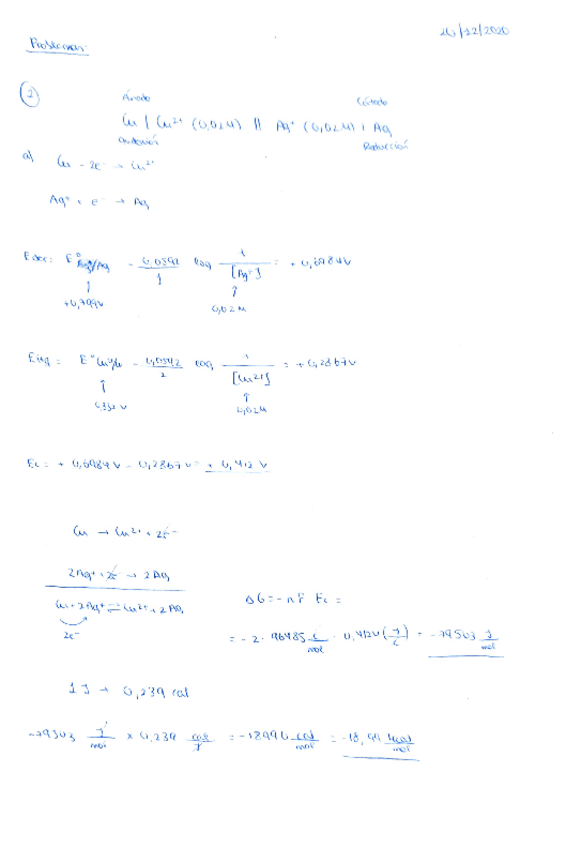 26/12/2020
Problemas:
2
Ánodo Cátodo
Cu | Cu²⁺ (0,02M) || Ag⁺ (0,02M) | Ag
Oxidación Reducción
a) Cu - 2e⁻ → Cu²⁺
Ag⁺ + e⁻ → Ag
Eder: E° Ag⁺/Ag - 0,0592/1 log 1/[Ag⁺] = + 0,6984V
↑ ↑
+0,799V 0,02M
Eizq = E° Cu²⁺/Cu - 0,0592/2 log 1/[Cu²⁺] = + 0,2867V
↑ ↑
0,337 V 0,02M
Ec = + 0,6984V - 0,2867V = + 0,412 V
Cu → Cu²⁺ + 2e⁻
2Ag⁺ + 2e⁻ → 2Ag
Cu + 2Ag⁺ ⇌ Cu²⁺ + 2Ag
2e⁻
ΔG = - nF Ec =
= - 2 · 96485 C/mol · 0,412V (J/C) = -79503 J/mol
1 J → 0,239 cal
-79503 J/mol x 0,239 cal/J = -18990 cal/mol = -18,99 kcal/mol